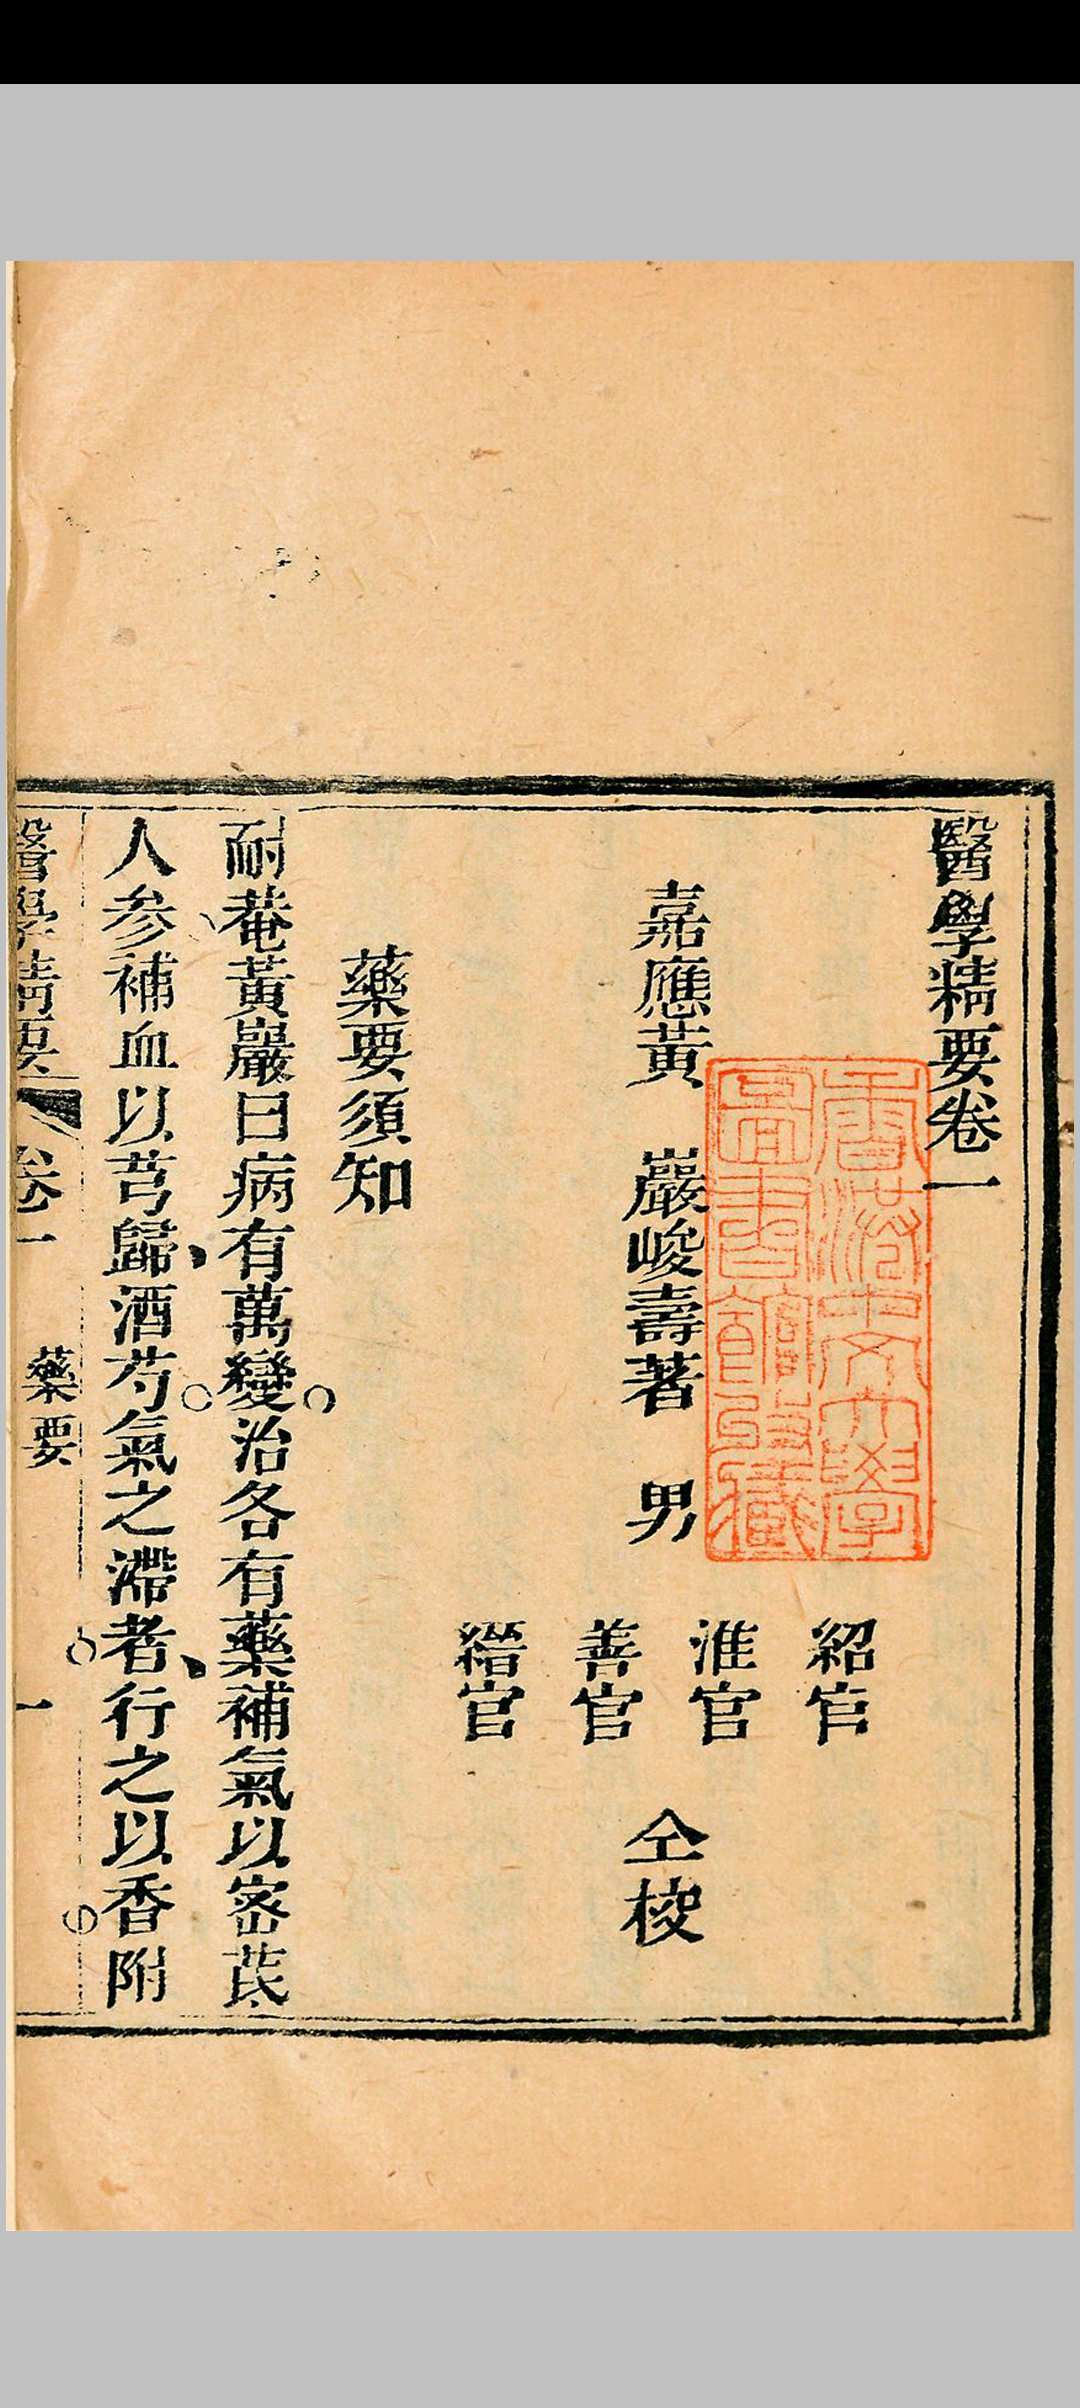 醫學精要卷一
紹官
淮官
嘉應黃 巖峻壽著 男 仝梭
善官
縉官
藥要須知
耐菴黃巖曰病有萬變治各有藥補氣以蜜茋
人參補血以芎歸酒芍氣之滯者行之以香附
醫學精要 卷一 藥要 一
香港中文大學
圖書館珍藏